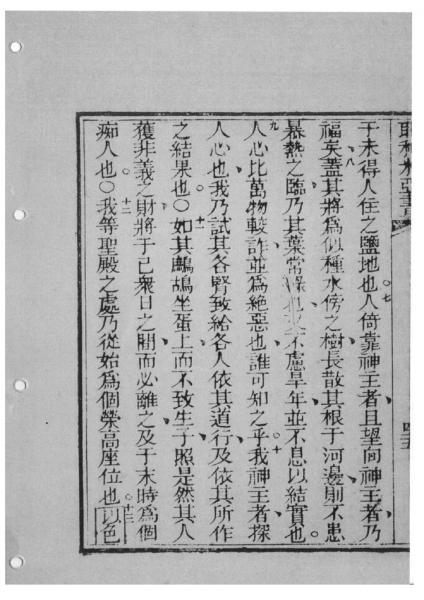 耶利米亞書
四五
于未得人住之鹽地也○七人倚靠神王者且望向神王者乃
福矣八蓋其將爲似種水傍之樹長散其根于河邊則不患
暑熱之臨乃其葉常綠也並不慮旱年並不息以結實也○
九人心比萬物較詐並爲絕惡也誰可知之乎○十我神王者探
人心也我乃試其各腎致給各人依其道行及依其所作
之結果也○十一如其鷓鴣坐蛋上而不致生子照是然其人
獲非義之財將于己衆日之間而必離之及于末時爲個
痴人也○十二我等聖殿之處乃從始爲個榮高座位也○十三以色